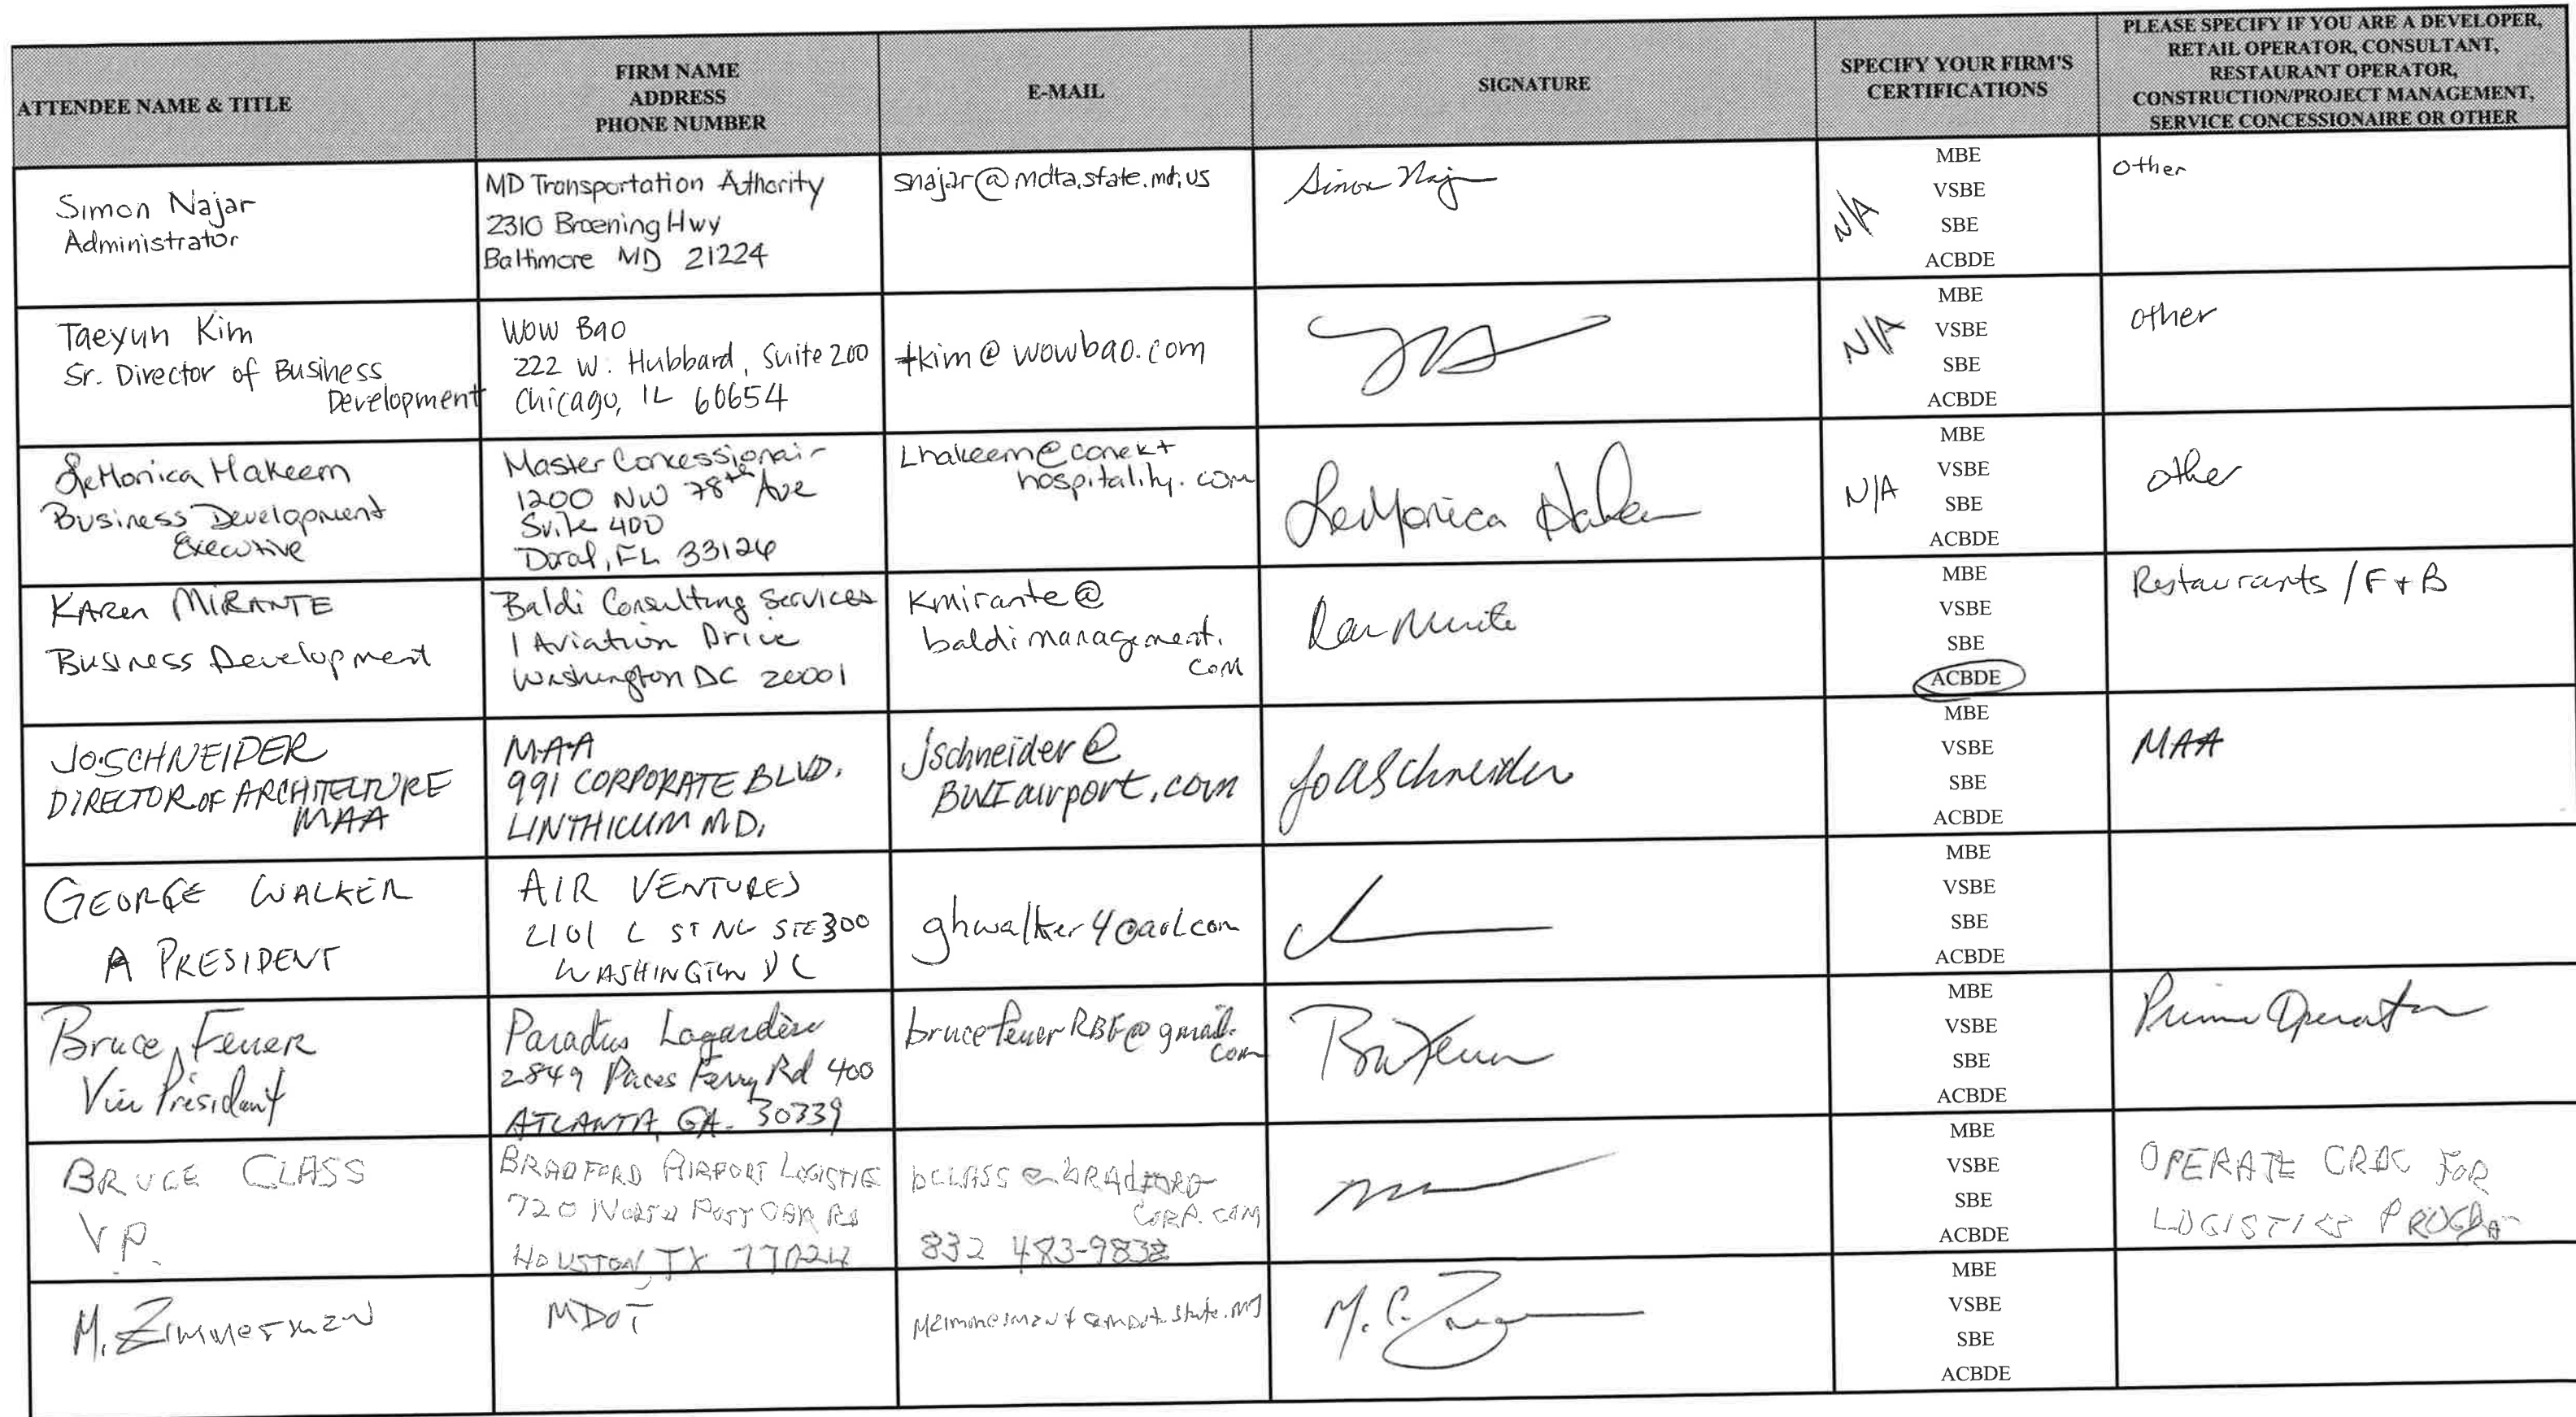 ATTENDEE NAME & TITLE
FIRM NAME
ADDRESS
PHONE NUMBER
E-MAIL
SIGNATURE
SPECIFY YOUR FIRM'S
CERTIFICATIONS
PLEASE SPECIFY IF YOU ARE A DEVELOPER,
RETAIL OPERATOR, CONSULTANT,
RESTAURANT OPERATOR,
CONSTRUCTION/PROJECT MANAGEMENT,
SERVICE CONCESSIONAIRE OR OTHER
Simon Najar
Administrator
MD Transportation Authority
2310 Broening Hwy
Baltimore MD 21224
snajar@mdta.state.md.us
Simon Naj
N/A
MBE
VSBE
SBE
ACBDE
other
Taeyun Kim
Sr. Director of Business
Development
Wow Bao
222 W. Hubbard, Suite 200
Chicago, IL 60654
tkim@wowbao.com
N/A
MBE
VSBE
SBE
ACBDE
other
LeMonica Hakeem
Business Development
Executive
Master Concessionair
1200 NW 78th Ave
Suite 400
Doral, FL 33126
Lhakeem@conekt
hospitality.com
LeMonica Hakeem
N/A
MBE
VSBE
SBE
ACBDE
other
KAREN MIRANTE
Business Development
Baldi Consulting Services
1 Aviation Drive
Washington DC 20001
Kmirante@
baldimanagement.
com
MBE
VSBE
SBE
ACBDE
Restaurants / F + B
JO.SCHNEIDER
DIRECTOR OF ARCHITECTURE
MAA
MAA
991 CORPORATE BLVD.
LINTHICUM MD.
Jschneider@
BWIairport.com
JoASchneider
MBE
VSBE
SBE
ACBDE
MAA
GEORGE WALKER
A PRESIDENT
AIR VENTURES
2101 L ST NW STE 300
WASHINGTON DC
ghwalker4@aol.com
MBE
VSBE
SBE
ACBDE
Bruce Feuer
Vice President
Paradies Lagardère
2849 Paces Ferry Rd 400
ATLANTA, GA. 30339
brucefeuerRBF@gmail.
com
MBE
VSBE
SBE
ACBDE
Prime Operator
BRUCE CLASS
V.P.
BRADFORD AIRPORT LOGISTIC
720 NORTH POST OAK RD
HOUSTON, TX 77024
bclass@bradford
CORP.COM
832 483-9838
MBE
VSBE
SBE
ACBDE
OPERATE CRDC FOR
LOGISTICS PROGRA
M. Zimmerman
MDOT
M.C.
MBE
VSBE
SBE
ACBDE